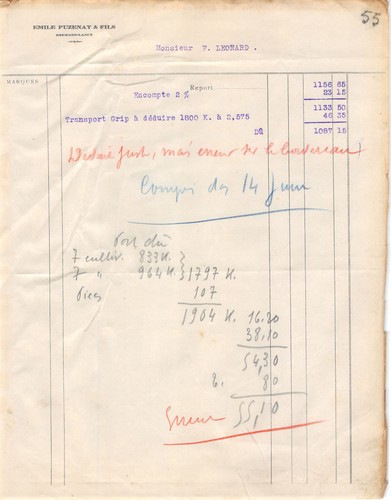 55
EMILE PUZENAY & FILS
Monsieur F. LEONARD .
MARQUES
Report 1156 65
Escompte 2 % 23 15
1133 50
Transport Grip à déduire 1800 K. à 2,575 46 35
Dû 1087 15
(Déclaré just, mais erreur sur le bordereau)
Compos des 14 Juin
Port dû
7 cultiv. 833 K.
7 " 964 K. } 1797 K.
107
1904 K. 16.20
38,10
54,30
80
55,10
Erreur